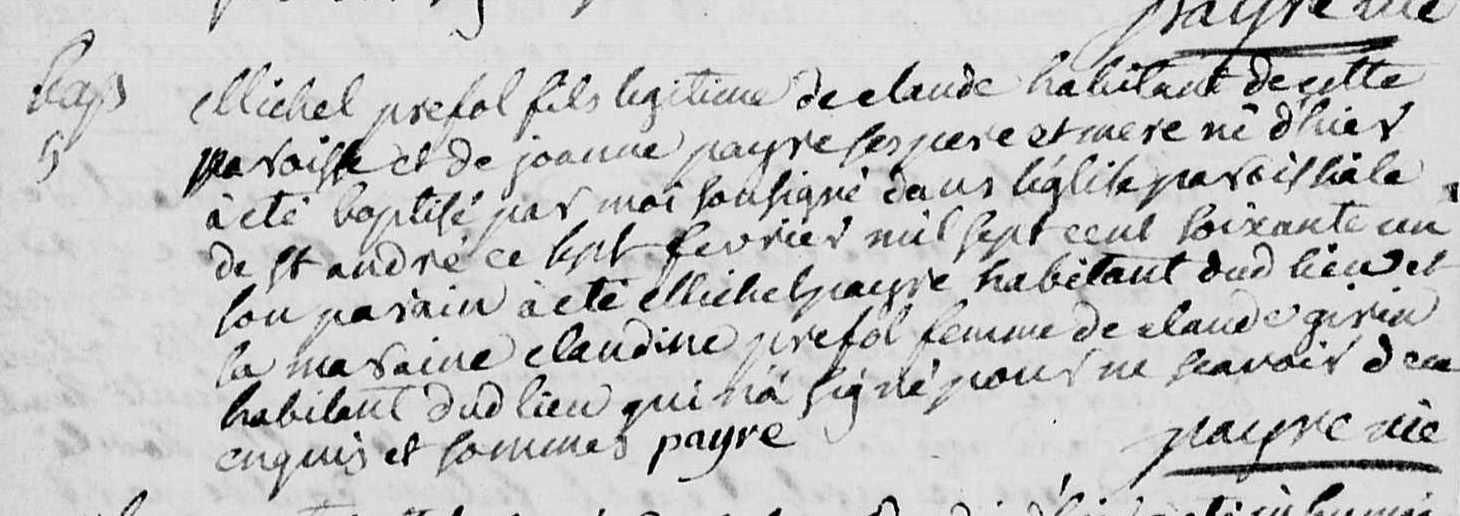 payre vic
Bap
5
Michel prefol fils legitime de claude habitant de cette
paroisse et de jeanne payre ses pere et mere né d'hier
à eté baptisé par moi sousigné dans l'église paroissiale
de st andré ce sept fevrier mil sept cent soixante un
son parain à eté Michel payre habitant dud lieu et
la maraine claudine prefol femme de claude girin
habitant dud lieu qui n'a signé pour ne scavoir de ce
enquis et sommés payre
payre vic